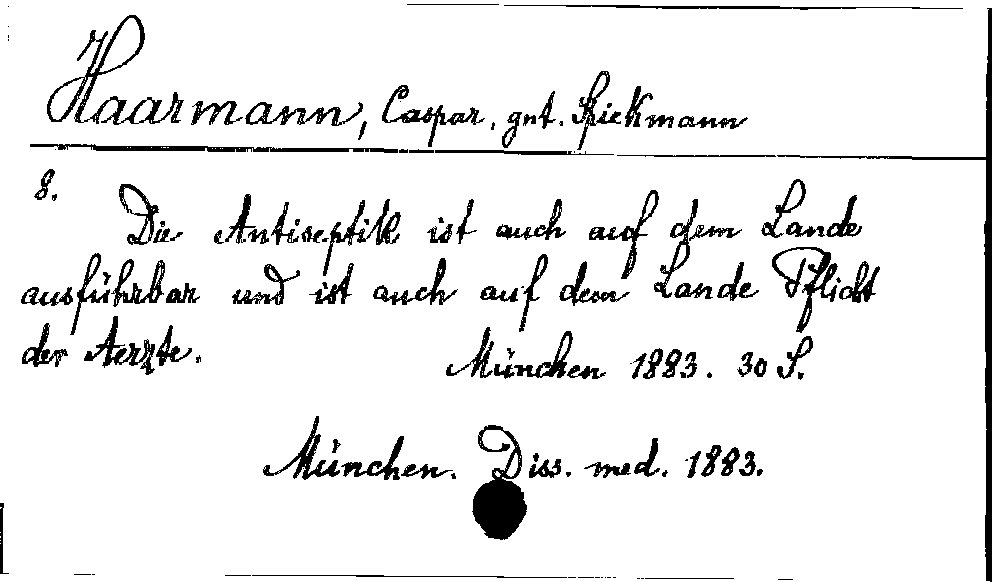 Haarmann, Caspar, gnt. Spickmann
8.
Die Antiseptik ist auch auf dem Lande
ausführbar und ist auch auf dem Lande Pflicht
der Aerzte.
München 1883. 30 S.
München. Diss. med. 1883.